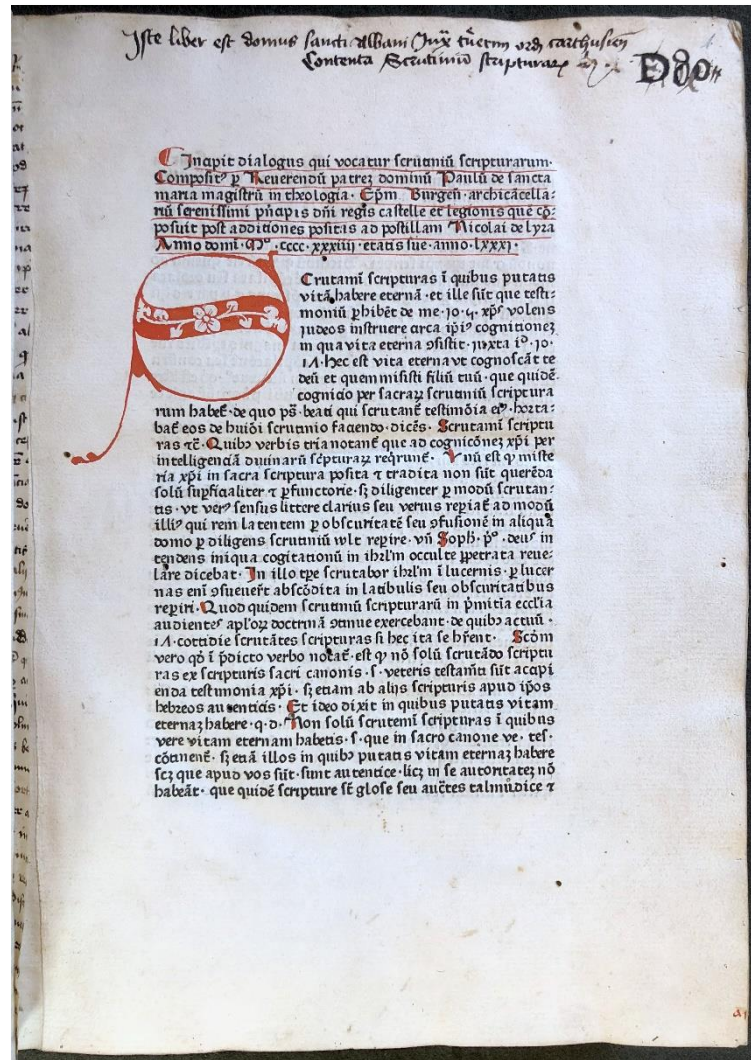 Iste liber est domus sancti Albani Jux tūerim ord carthusień
Contenta Scrutiniū scripturaꝝ
D80
Incipit dialogus qui vocatur scrutiniū scripturarum·
Compositꝰ ꝑ Reuerendū patreꝫ dominū Paulū de sancta
maria magistrū in theologia· Ep̄m Burgeń· archicācella-
riū serenissimi pn̄cipis dn̄i regis castelle et legionis quē cō-
posuit post additiones positas ad postillam Nicolai de lyra
Anno domī· M°· cccc· xxxiiii· etatis sue· anno· lxxxi·
Crutamī scripturas ī quibus putatis
vitā habere eternā· et ille sūt que testi-
moniū ꝑhibēt de me· io· 5· xp̄s volens
iudeos instruere circa ip̄iꝰ cognitioneꝫ
in qua vita eterna ↄsistit· iuxta id· io·
17· hec est vita eterna vt cognoscāt te
deū et quem misisti filiū tuū· que quidē
cognicio per sacraꝝ scrutiniū scriptura
rum habet̄· de quo ps̄· beati qui scrutant̄ testimōia eiꝰ· horta-
bat̄ eos de huiōi scrutinio faciendo· dicēs· Scrutamī scriptu
ras ⁊c̄· Quibꝰ verbis tria notant̄ que ad cognicōneꝫ xp̄i per
intelligenciā diuinarū sc͛pturaꝝ reqrunt̄· Vnū est ꝙ miste
ria xp̄i in sacra scriptura posita ⁊ tradita non sūt querēda
solū suꝑficialiter ⁊ ꝑfunctorie· sꝫ diligenter ꝑ modū scrutan-
tis· vt verꝰ sensus littere clarius seu verius reꝑiat̄ ad modū
illiꝰ qui rem latentem ꝑ obscuritatē seu ↄfusionē in aliqua
domo ꝑ diligens scrutiniū wlt reꝑire· vn̄ Soph· p°· deus in
tendens iniqua cogitationū in ihrl'm occulte ꝑpetrata reue-
lare dicebat· In illo tp̄e scrutabor ihrl'm ī lucernis· ꝑ lucer
nas enī ↄsueuer̄t abscōdita in latibulis seu obscuritatibus
reꝑiri· Quod quidem scrutiniū scripturarū in pͥmitia eccl̄ia
audientes apl'oꝝ doctrinā ↄtinue exercebant· de quibꝰ actuū·
17· cottidie scrutātes scripturas si hec ita se hr̄ent· Scōm
vero qd̄ ī p̄dicto verbo notat̄· est ꝙ nō solū scrutādo scriptu
ras ex scripturis sacri canonis· s· veteris testam̄ti sūt accipi
enda testimonia xp̄i· sꝫ etiam ab alijs scripturis apud ip̄os
hebreos autenticis· Et ideo dixit in quibus putatis vitam
eternaꝫ habere· q· d· Non solū scrutemī scripturas ī quibus
vere vitam eternam habetis· s· que in sacro canone ve· tes·
cōtinent̄· sꝫ etiā illos in quibꝰ putatis vitam eternaꝫ habere
scꝫ que apud vos sūt· sunt autentice· licꝫ in se autoritateꝫ nō
habeāt· que quidē scripture st̄ glose seu auct̄es talmudice ⁊
a1